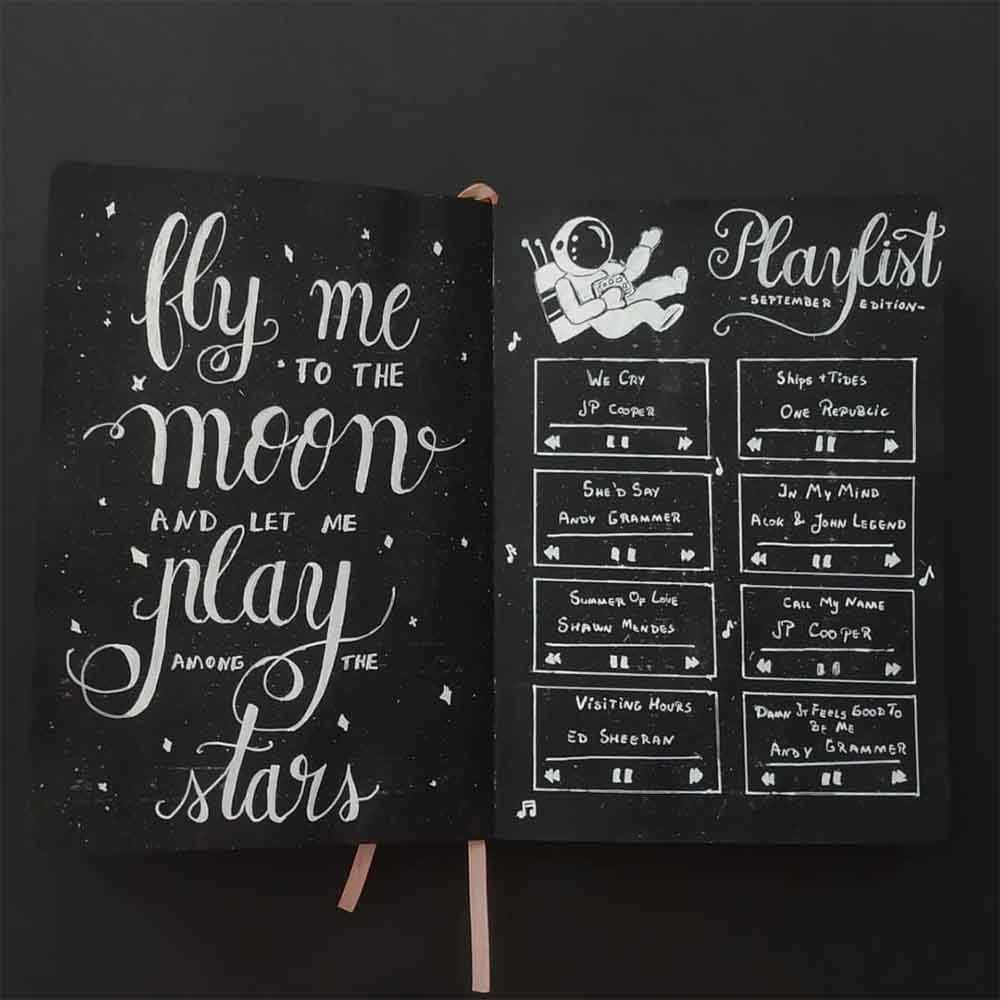 fly me
TO THE
moon
AND LET ME
play
AMONG THE
stars
Playlist
-SEPTEMBER EDITION-
WE CRY
JP COOPER
SHIPS + TIDES
ONE REPUBLIC
SHE'D SAY
ANDY GRAMMER
IN MY MIND
ALOK & JOHN LEGEND
SUMMER OF LOVE
SHAWN MENDES
CALL MY NAME
JP COOPER
VISITING HOURS
ED SHEERAN
DAMN IT FEELS GOOD TO
BE ME
ANDY GRAMMER